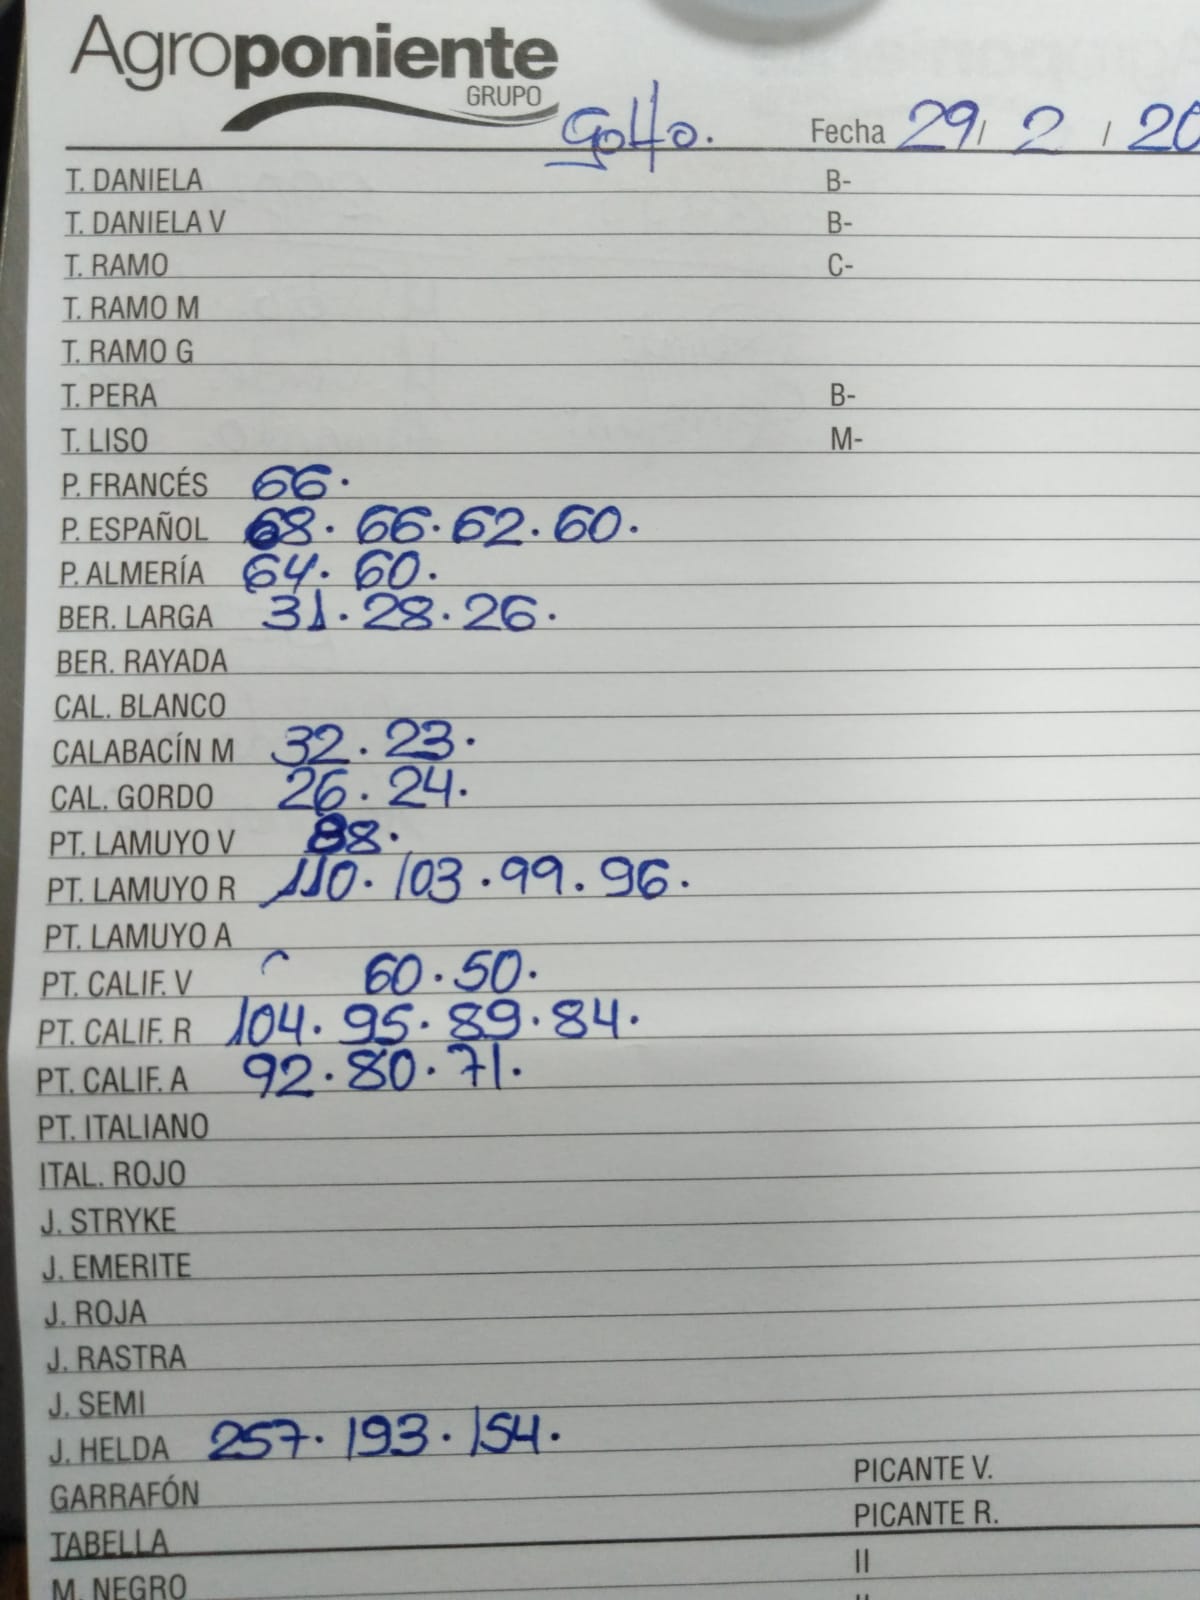 Agroponiente
GRUPO
Golfo. Fecha 29/ 2 / 20
T. DANIELA B-
T. DANIELA V B-
T. RAMO C-
T. RAMO M
T. RAMO G
T. PERA B-
T. LISO M-
P. FRANCÉS 66.
P. ESPAÑOL 68. 66. 62. 60.
P. ALMERÍA 64. 60.
BER. LARGA 31. 28. 26.
BER. RAYADA
CAL. BLANCO
CALABACÍN M 32. 23.
CAL. GORDO 26. 24.
PT. LAMUYO V 88.
PT. LAMUYO R 110. 103. 99. 96.
PT. LAMUYO A
PT. CALIF. V 60. 50.
PT. CALIF. R 104. 95. 89. 84.
PT. CALIF. A 92. 80. 71.
PT. ITALIANO
ITAL. ROJO
J. STRYKE
J. EMERITE
J. ROJA
J. RASTRA
J. SEMI
J. HELDA 257. 193. 154.
GARRAFÓN PICANTE V.
TABELLA PICANTE R.
M. NEGRO II